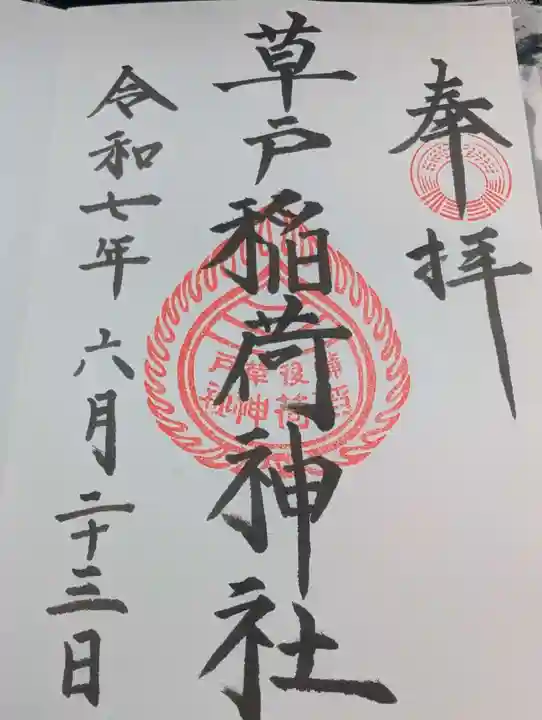 奉拝
草戸稲荷神社
令和七年 六月二十三日